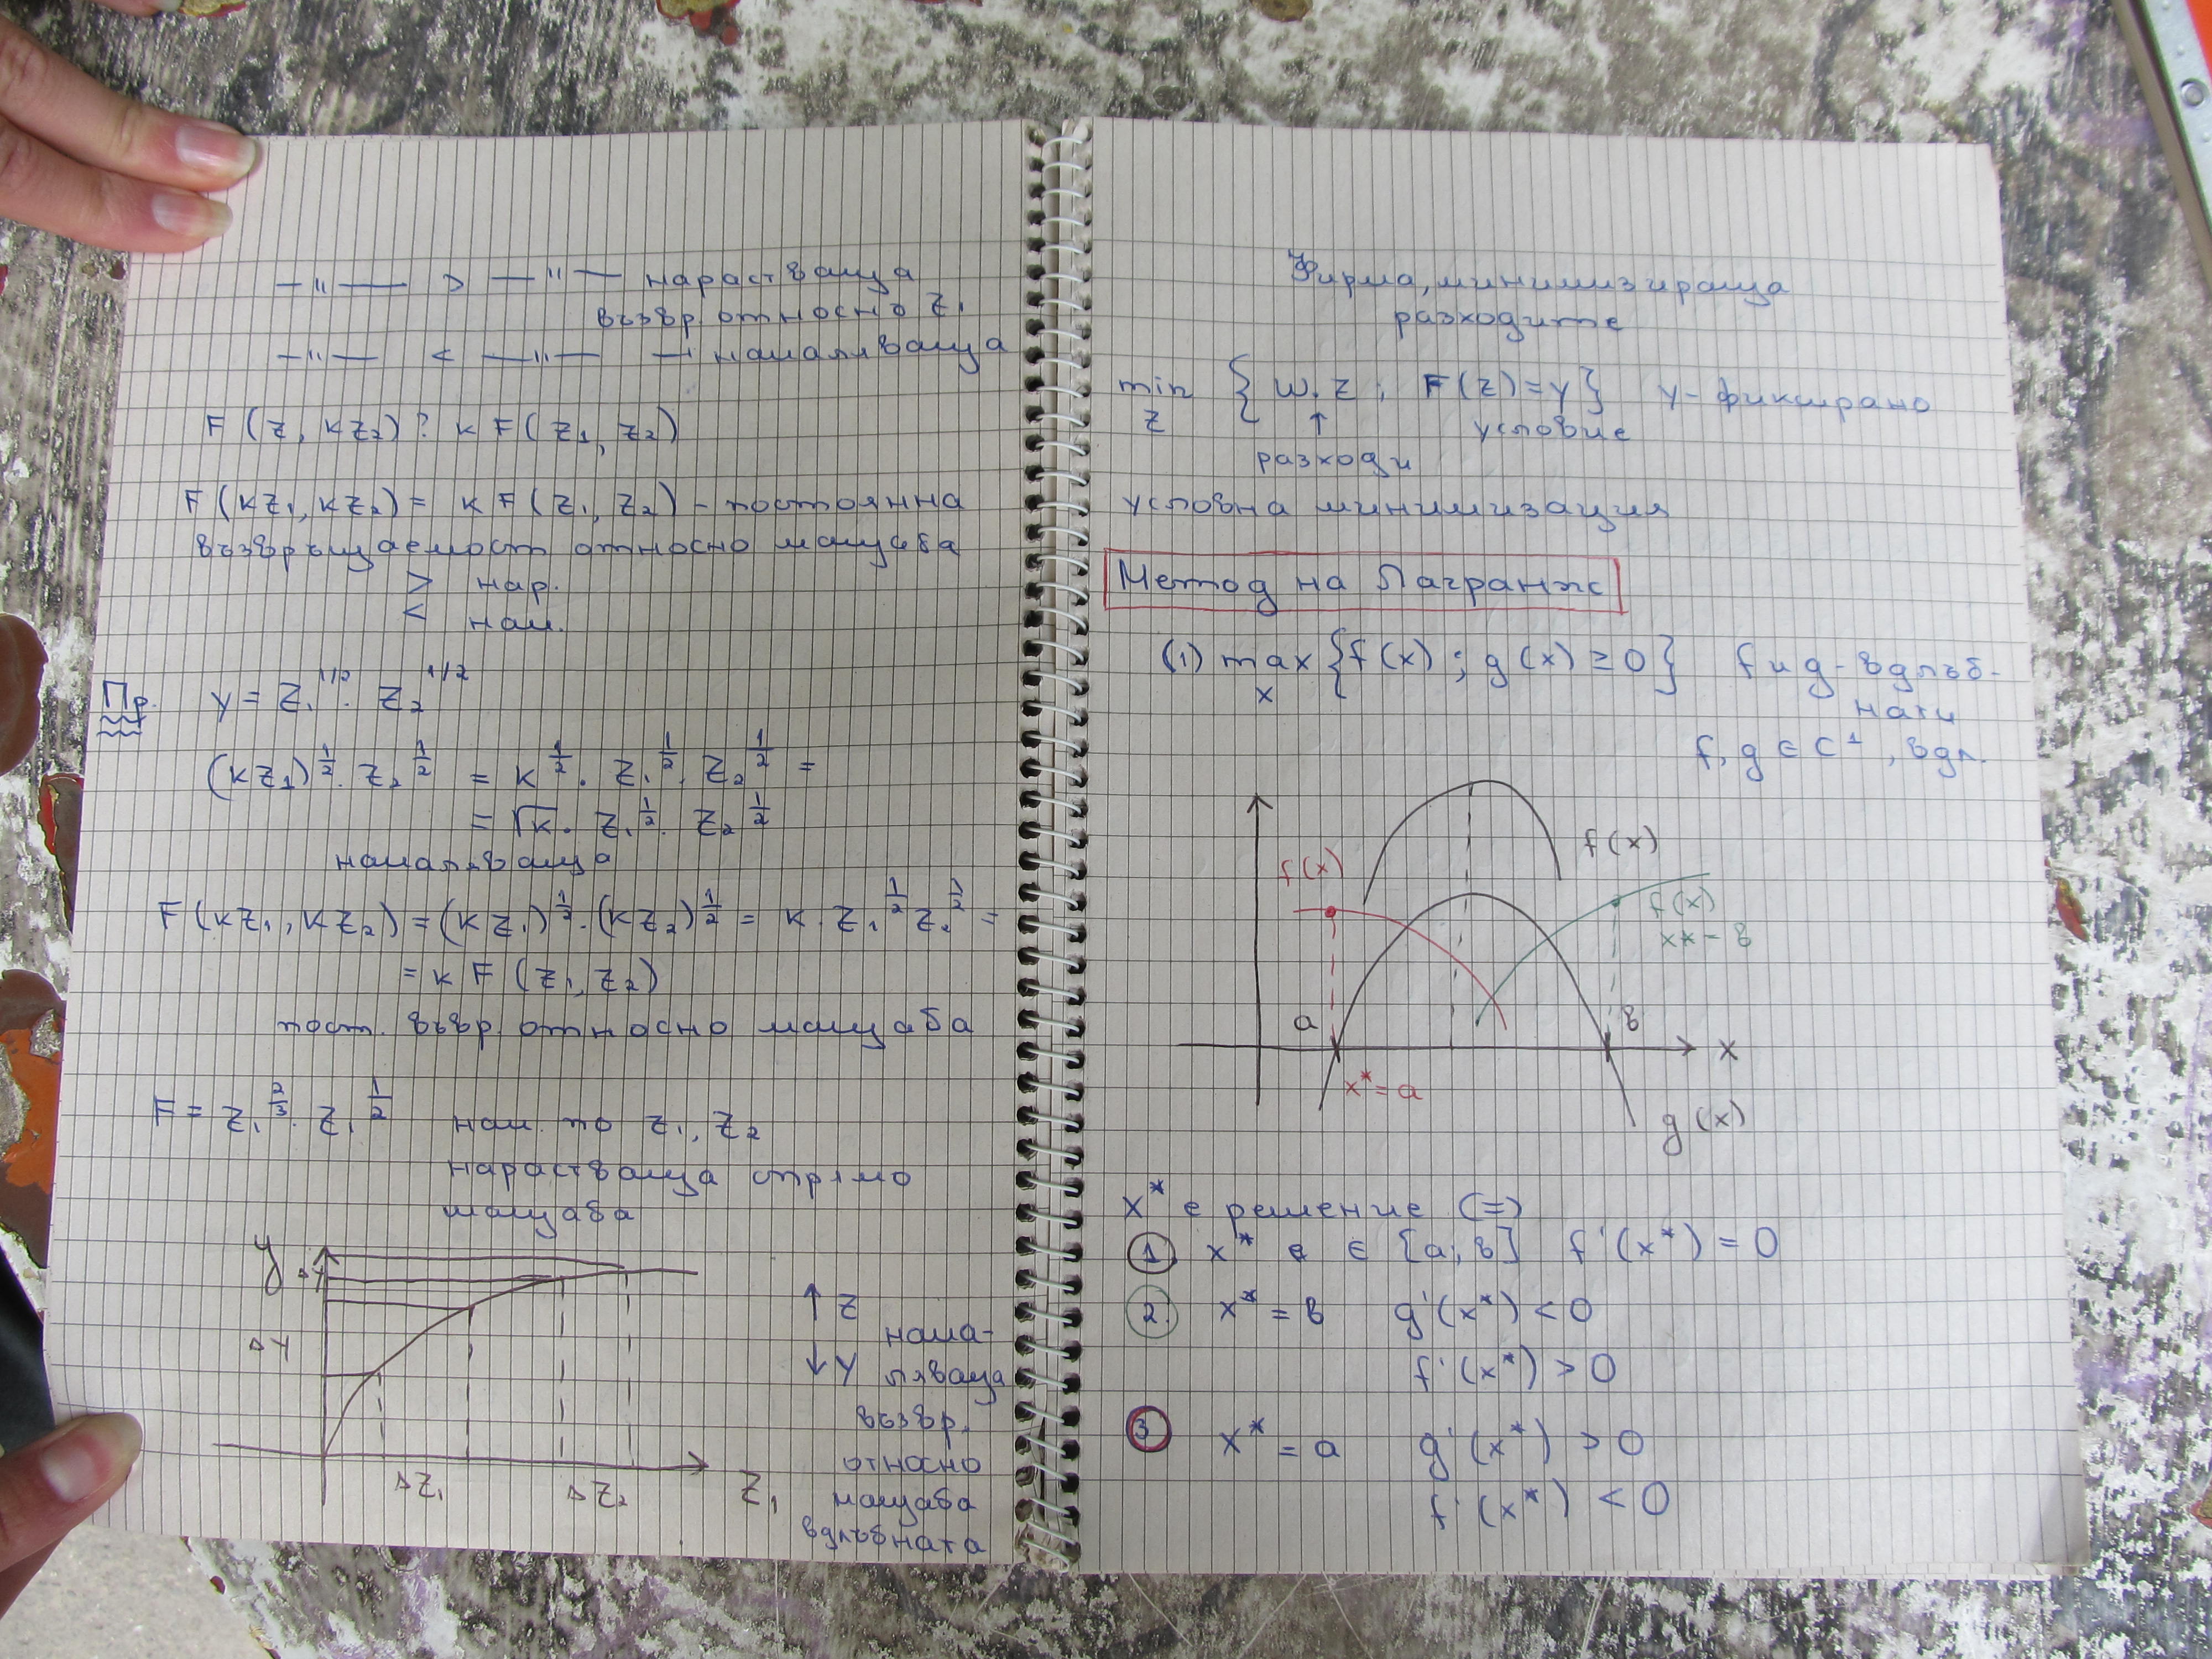 —"— > —"— нарастваща
възвр. относно z₁
—"— < —"— — намаляваща
F (z, kz₂) ? k F(z₁, z₂)
F(kz₁, kz₂) = k F(z₁, z₂) - постоянна
възвръщаемост относно мащаба
> нар.
< нам.
Пр. y = z₁^1/2 . z₂^1/2
(kz₁)^1/2 . z₂^1/2 = k^1/2 . z₁^1/2 . z₂^1/2 =
= √k . z₁^1/2 . z₂^1/2
намаляваща
F(kz₁, kz₂) = (kz₁)^1/2 . (kz₂)^1/2 = k . z₁^1/2 z₂^1/2 =
= k F (z₁, z₂)
пост. възвр. относно мащаба
F = z₁^2/3 . z₁^1/2 нам. по z₁, z₂
нарастваща спрямо
мащаба
y
ΔY
ΔY
Δz₁ Δz₂ z₁
↑ z
нама-
↓ y ляваща
възвр.
относно
мащаба
вдлъбната
Фирма, минимизираща
разходите
min { w.z ; F(z) = y } y - фиксирано
z ↑ условие
разходи
условна минимизация
Метод на Лагранж
(1) max {f(x) ; g(x) ≥ 0} f и g - вдлъб-
x нати
f, g ∈ C¹, вдл.
f(x)
f(x)
f(x)
x* = в
a в
x
x* = a
g(x)
x* е решение (=)
1. x* ∈ [a; в] f'(x*) = 0
2. x* = в g'(x*) < 0
f'(x*) > 0
3 x* = a g'(x*) > 0
f'(x*) < 0